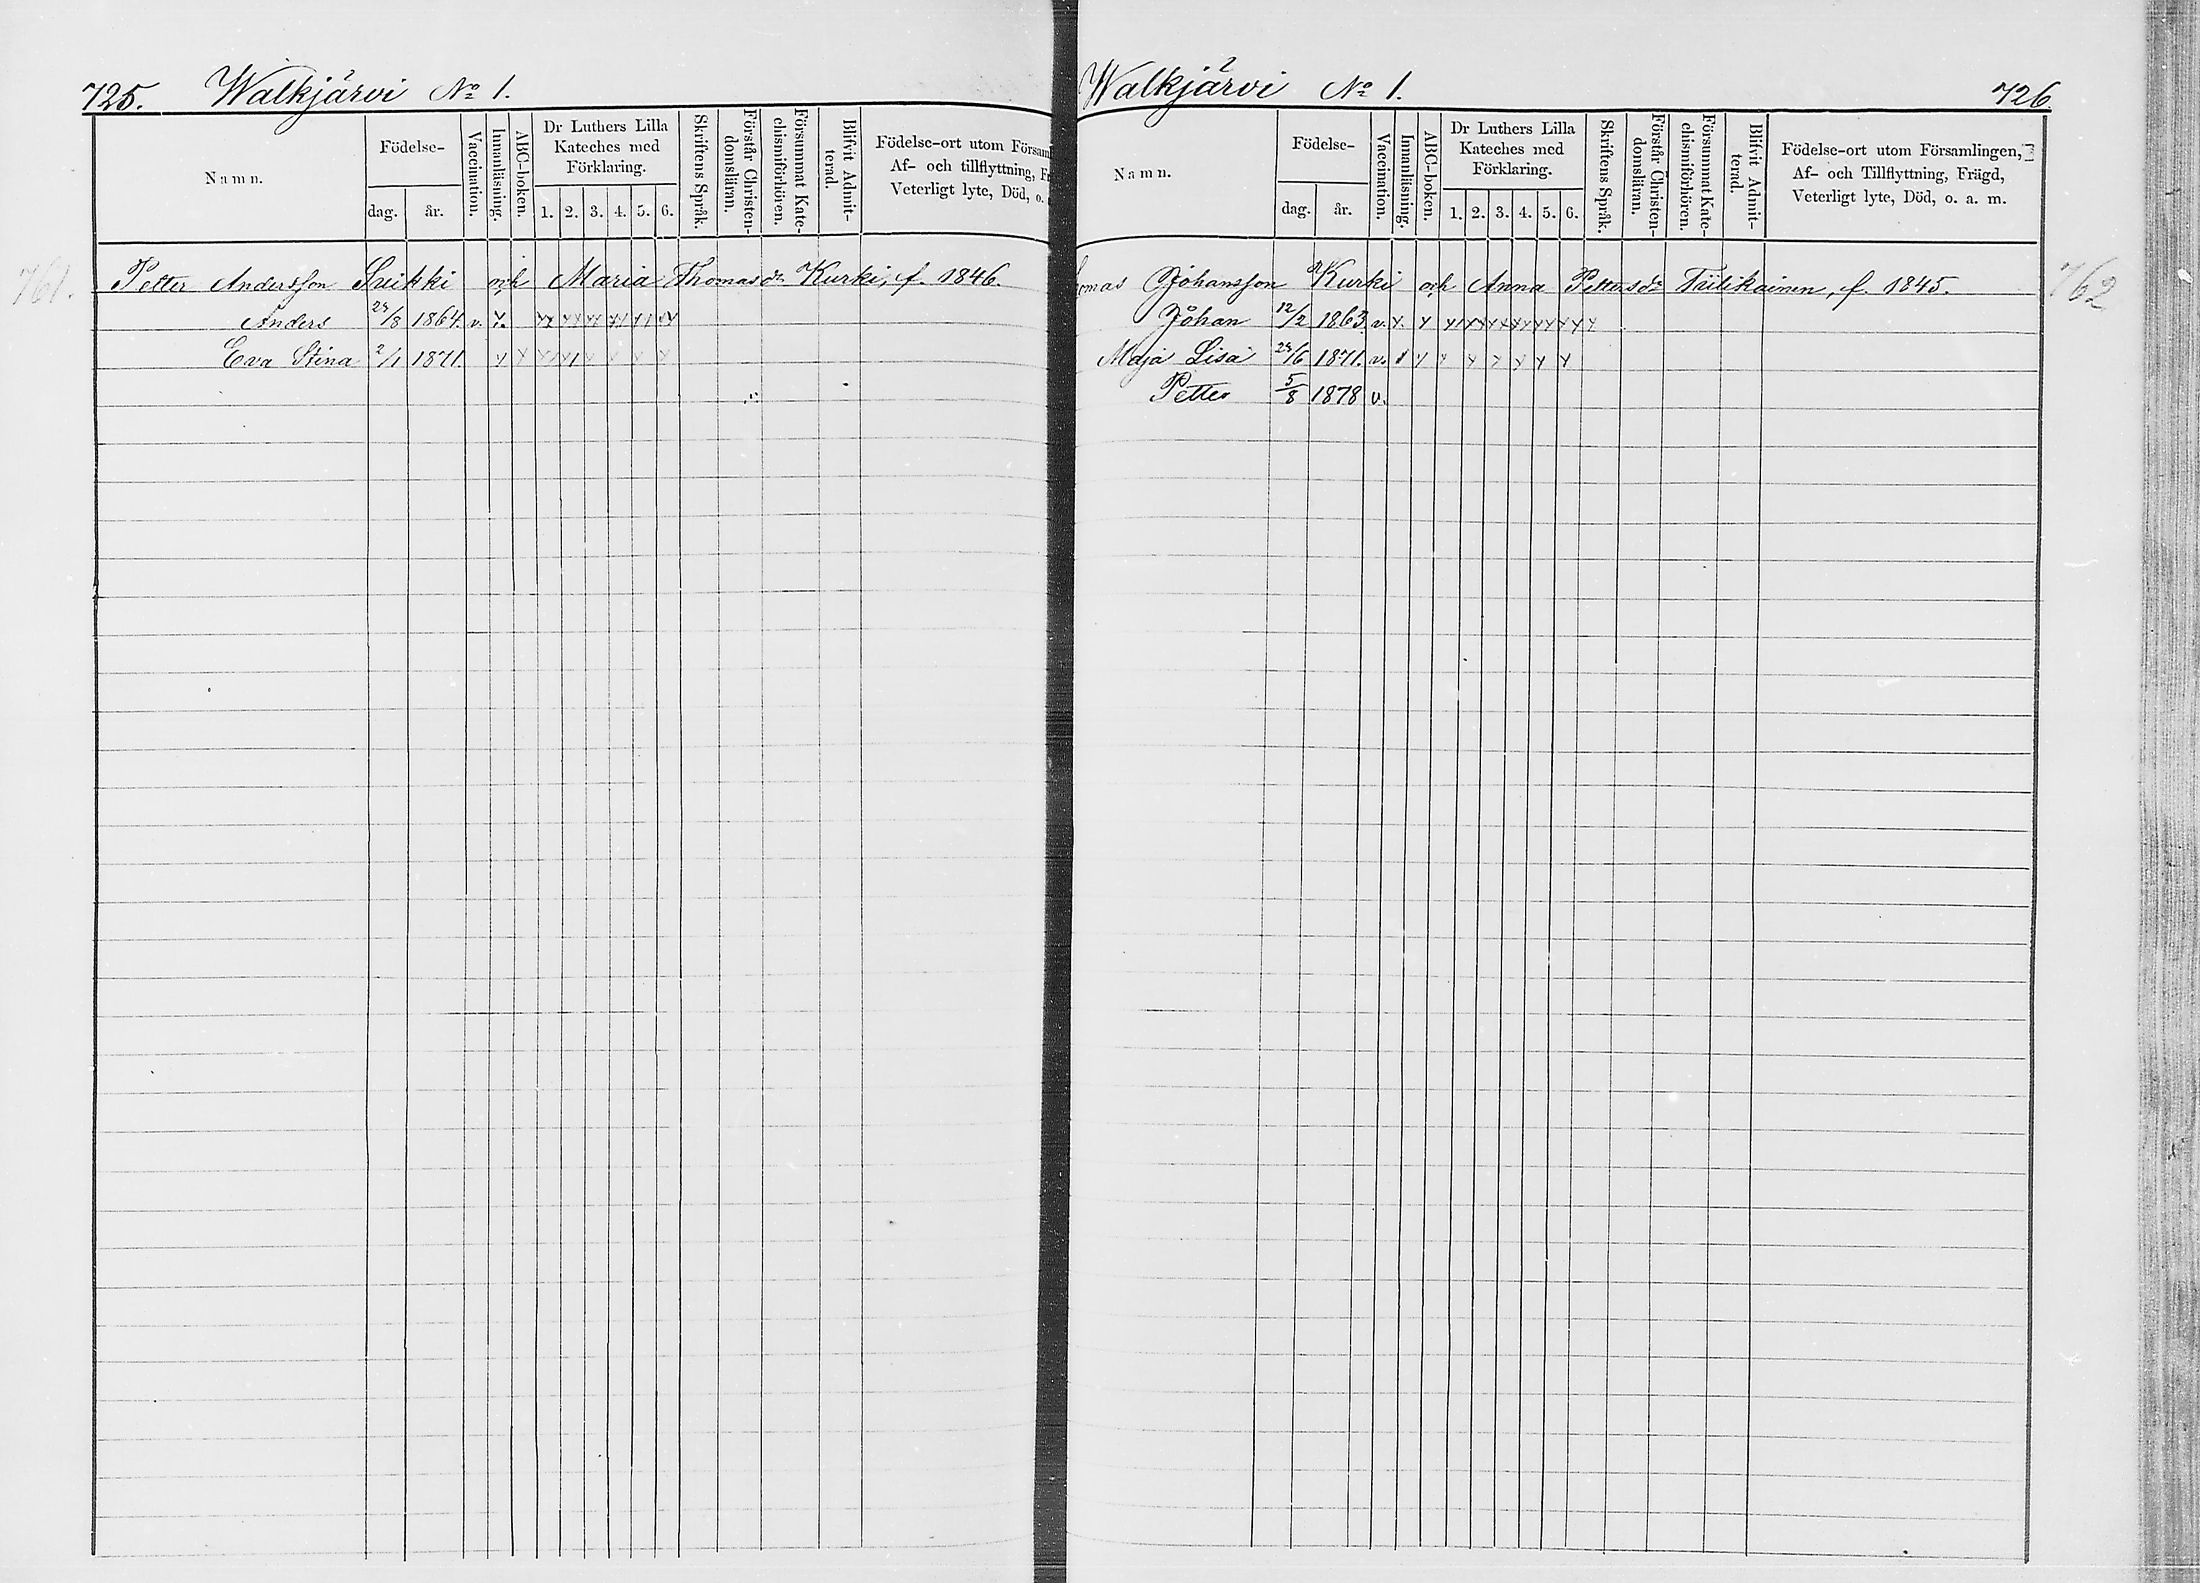 725. Walkjärvi No 1.
Namn.
Födelse-
dag.
år.
Vaccination.
Innanläsning.
ABC-boken.
Dr Luthers Lilla
Kateches med
Förklaring.
1. 2. 3. 4. 5. 6.
Skriftens Språk.
Förstår Christen-
domsläran.
Försummat Kate-
chismiförhören.
Blifvit Admit-
terad.
Födelse-ort utom Församl
Af- och tillflyttning, Fr
Veterligt lyte, Död, o.
761.
Petter Andersson Suikki och Maria Thomasdr Kurki, f. 1846.
Anders 1864. v. y.
Eva Stina 2/1 1871.
Walkjärvi No 1. 726.
Namn.
Födelse-
dag.
år.
Vaccination.
Innanläsning.
ABC-boken.
Dr Luthers Lilla
Kateches med
Förklaring.
1. 2. 3. 4. 5. 6.
Skriftens Språk.
Förstår Christen-
domsläran.
Försummat Kate-
chismiförhören.
Blifvit Admit-
terad.
Födelse-ort utom Församlingen,
Af- och Tillflyttning, Frägd,
Veterligt lyte, Död, o. a. m.
omas Johansson Kurki och Anna Pettersdr Tiilikainen, f. 1845.
762
Johan 12/2 1863. v.
Maja Lisa 1871. v.
Petter 5/8 1878 v.